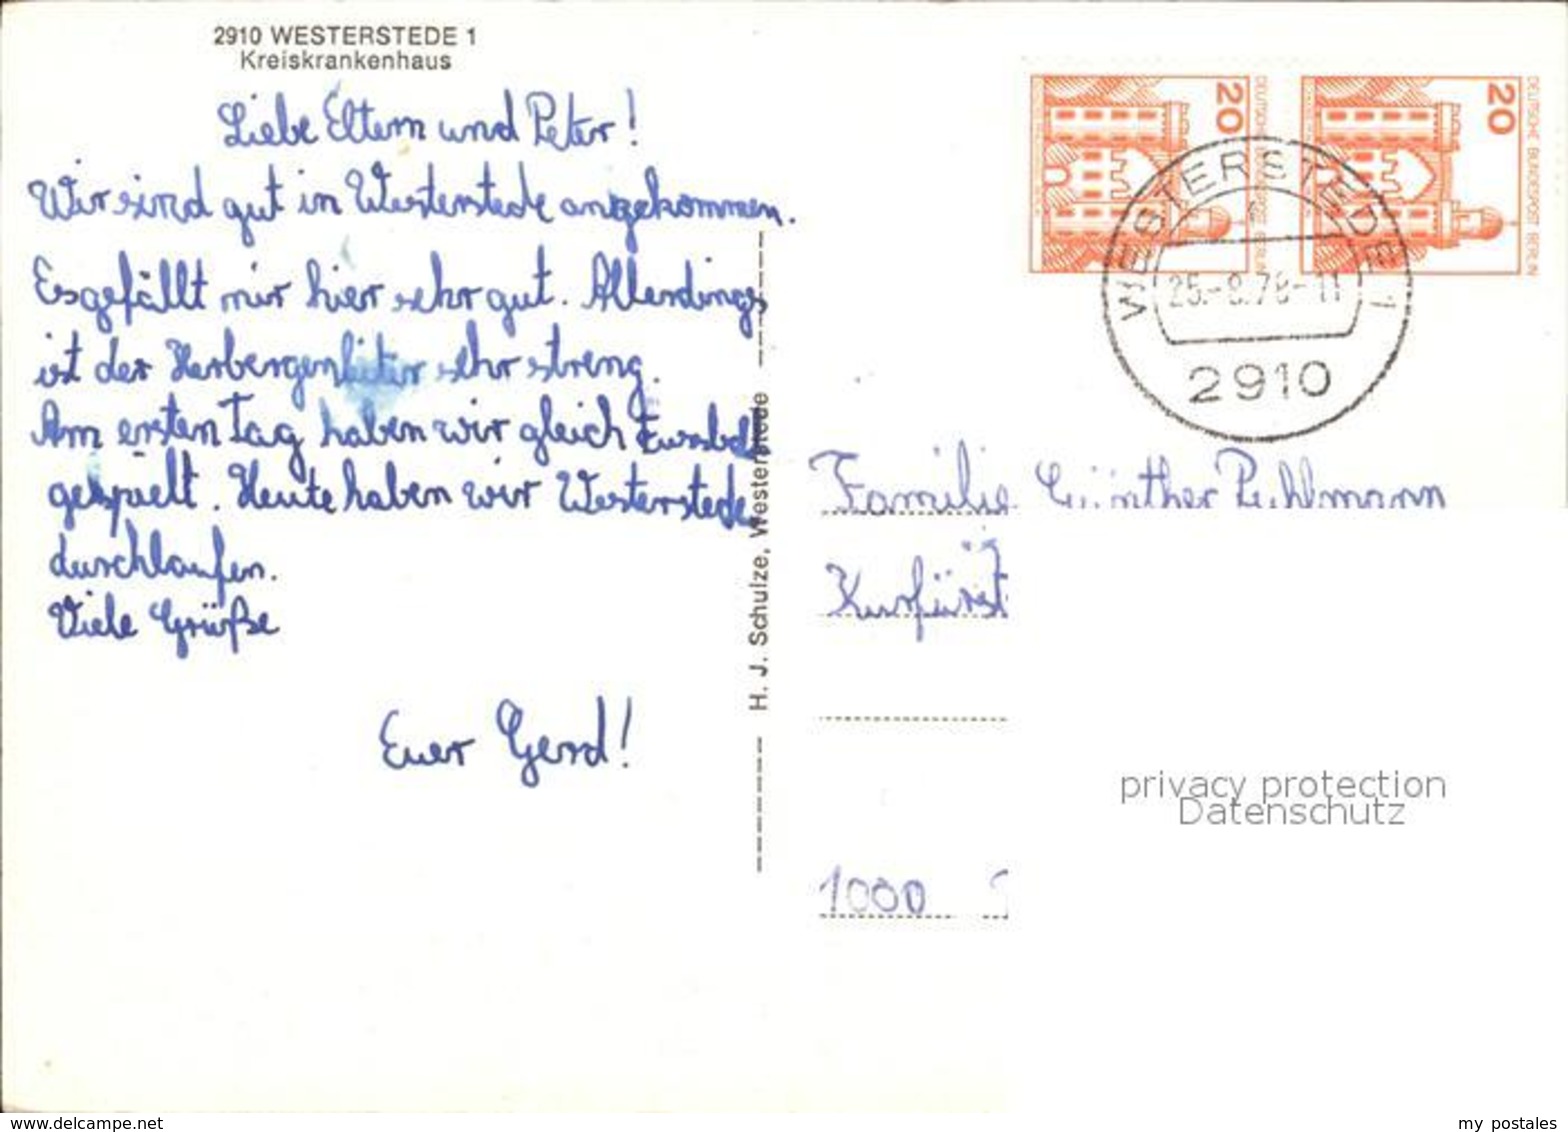 2910 WESTERSTEDE 1
Kreiskrankenhaus
Liebe Eltern und Peter!
Wir sind gut in Westerstede angekommen.
Es gefällt mir hier sehr gut. Allerdings
ist der Herbergenleiter sehr streng.
Am ersten Tag haben wir gleich Fussball
gespielt. Heute haben wir Westerstede
durchlaufen.
Viele Grüße
Euer Gerd!
H. J. Schulze, Westerstede
20
DEUTSCHE BUNDESPOST BERLIN
20
DEUTSCHE BUNDESPOST BERLIN
WESTERSTEDE 1
25.-9.78-11
2910
Familie Günther Puhlmann
Kurfürst
1000
privacy protection
Datenschutz
www.delcampe.net
my postales